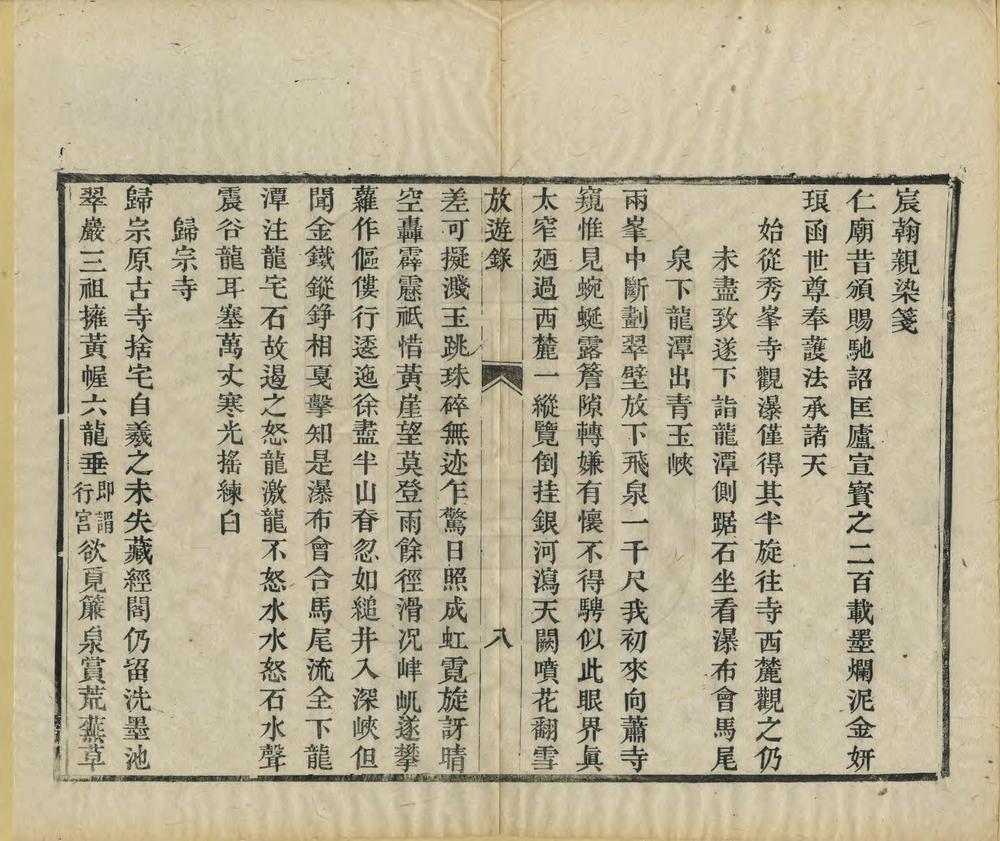 宸翰親染箋
仁廟昔頒賜馳詔匡廬宣賓之二百載墨爛泥金妍
琅函世尊奉護法承諸天
始從秀峯寺觀瀑僅得其半旋往寺西麓觀之仍
未盡致遂下詣龍潭側踞石坐看瀑布會馬尾
泉下龍潭出青玉峽
兩峯中斷劃翠壁放下飛泉一千尺我初來向蕭寺
窺惟見蜿蜒露簷隙轉嫌有懷不得騁似此眼界眞
太窄迺過西麓一縱覽倒挂銀河瀉天闕噴花翻雪
放遊錄 八
差可擬濺玉跳珠碎無迹乍驚日照成虹霓旋訝晴
空轟霹靂祗惜黃崖望莫登雨餘徑滑況峍屼遂攀
蘿作傴僂行逶迤徐盡半山脊忽如縋井入深峽但
聞金鐵鏦錚相戛擊知是瀑布會合馬尾流全下龍
潭注龍宅石故遏之怒龍激龍不怒水水怒石水聲
震谷龍耳塞萬丈寒光搖練白
歸宗寺
歸宗原古寺捨宅自羲之未失藏經閣仍留洗墨池
翠巖三祖擁黃幄六龍垂卽謂行宮欲覓簾泉賞荒蕪草